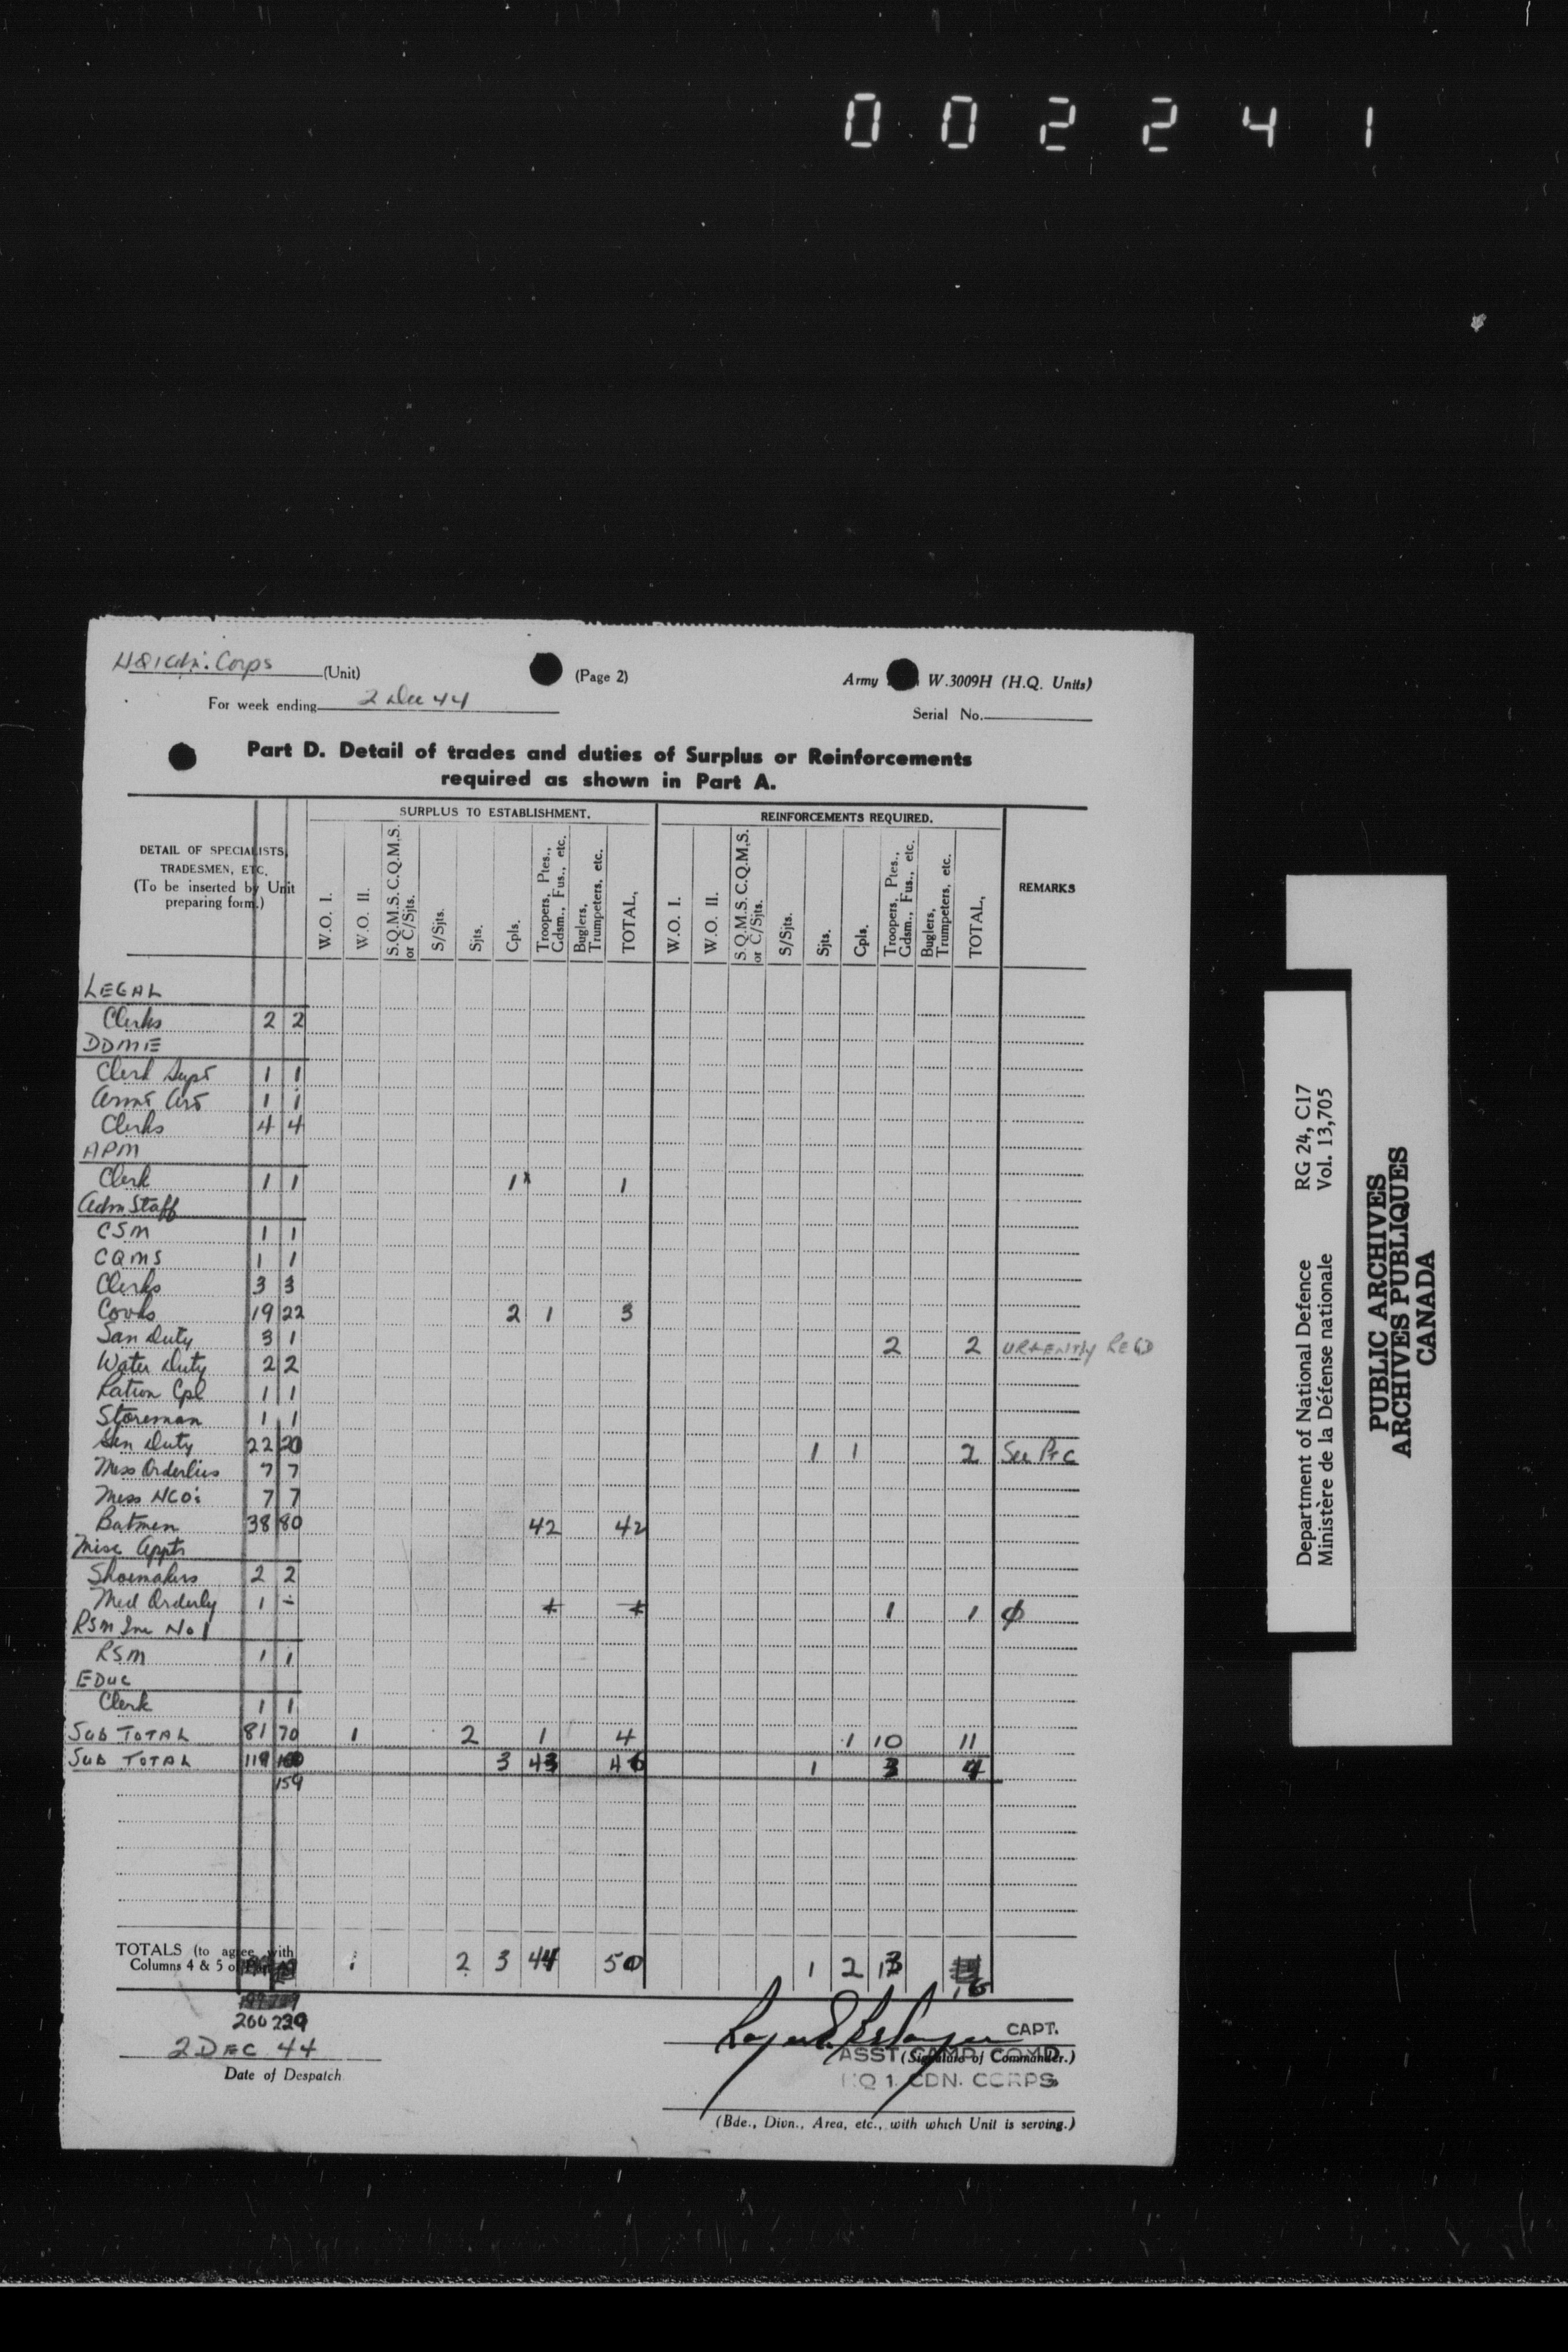 002241
HQ 1 Cdn. Corps (Unit) (Page 2) Army W.3009H (H.Q. Units)
For week ending 2 Dec 44 Serial No.
Part D. Detail of trades and duties of Surplus or Reinforcements
required as shown in Part A.
DETAIL OF SPECIALISTS,
TRADESMEN, ETC.
(To be inserted by Unit
preparing form.)
SURPLUS TO ESTABLISHMENT.
W.O. I.
W.O. II.
S.Q.M.S. C.Q.M.S.
or C/Sjts.
S/Sjts.
Sjts.
Cpls.
Troopers, Ptes.,
Gdsm., Fus., etc.
Buglers,
Trumpeters, etc.
TOTAL,
REINFORCEMENTS REQUIRED.
W.O. I.
W.O. II.
S.Q.M.S. C.Q.M.S.
or C/Sjts.
S/Sjts.
Sjts.
Cpls.
Troopers, Ptes.,
Gdsm., Fus., etc.
Buglers,
Trumpeters, etc.
TOTAL,
REMARKS
LEGAL
Clerks 2 2
DDME
Clerk Supt 1 1
Armt Art 1 1
Clerks 4 4
APM
Clerk 1 1 1x 1
Adm Staff
CSM 1 1
CQMS 1 1
Clerks 3 3
Cooks 19 22 2 1 3
San Duty 3 1 2 2 URGENTLY REQD
Water Duty 2 2
Ration Cpl 1 1
Storeman 1 1
Gen Duty 22 20 1 1 2 See Pt C
Mess Orderlies 7 7
Mess NCOs 7 7
Batmen 38 80 42 42
Misc Appts
Shoemakers 2 2
Med Orderly 1 - 1 1 ϕ
RSM Inc No 1
RSM 1 1
EDUC
Clerk 1 1
SUB TOTAL 81 70 1 2 1 4 1 10 11
SUB TOTAL 119 3 43 46 1 3 4
159
TOTALS (to agree with
Columns 4 & 5 o 1 2 3 44 50 1 2 13
15
200 229
2 DEC 44
Date of Despatch
CAPT.
ASST CAMP COMD
(Signature of Commander.)
HQ 1. CDN. CORPS
(Bde., Divn., Area, etc., with which Unit is serving.)
Department of National Defence RG 24, C17
Ministère de la Défense nationale Vol. 13,705
PUBLIC ARCHIVES
ARCHIVES PUBLIQUES
CANADA